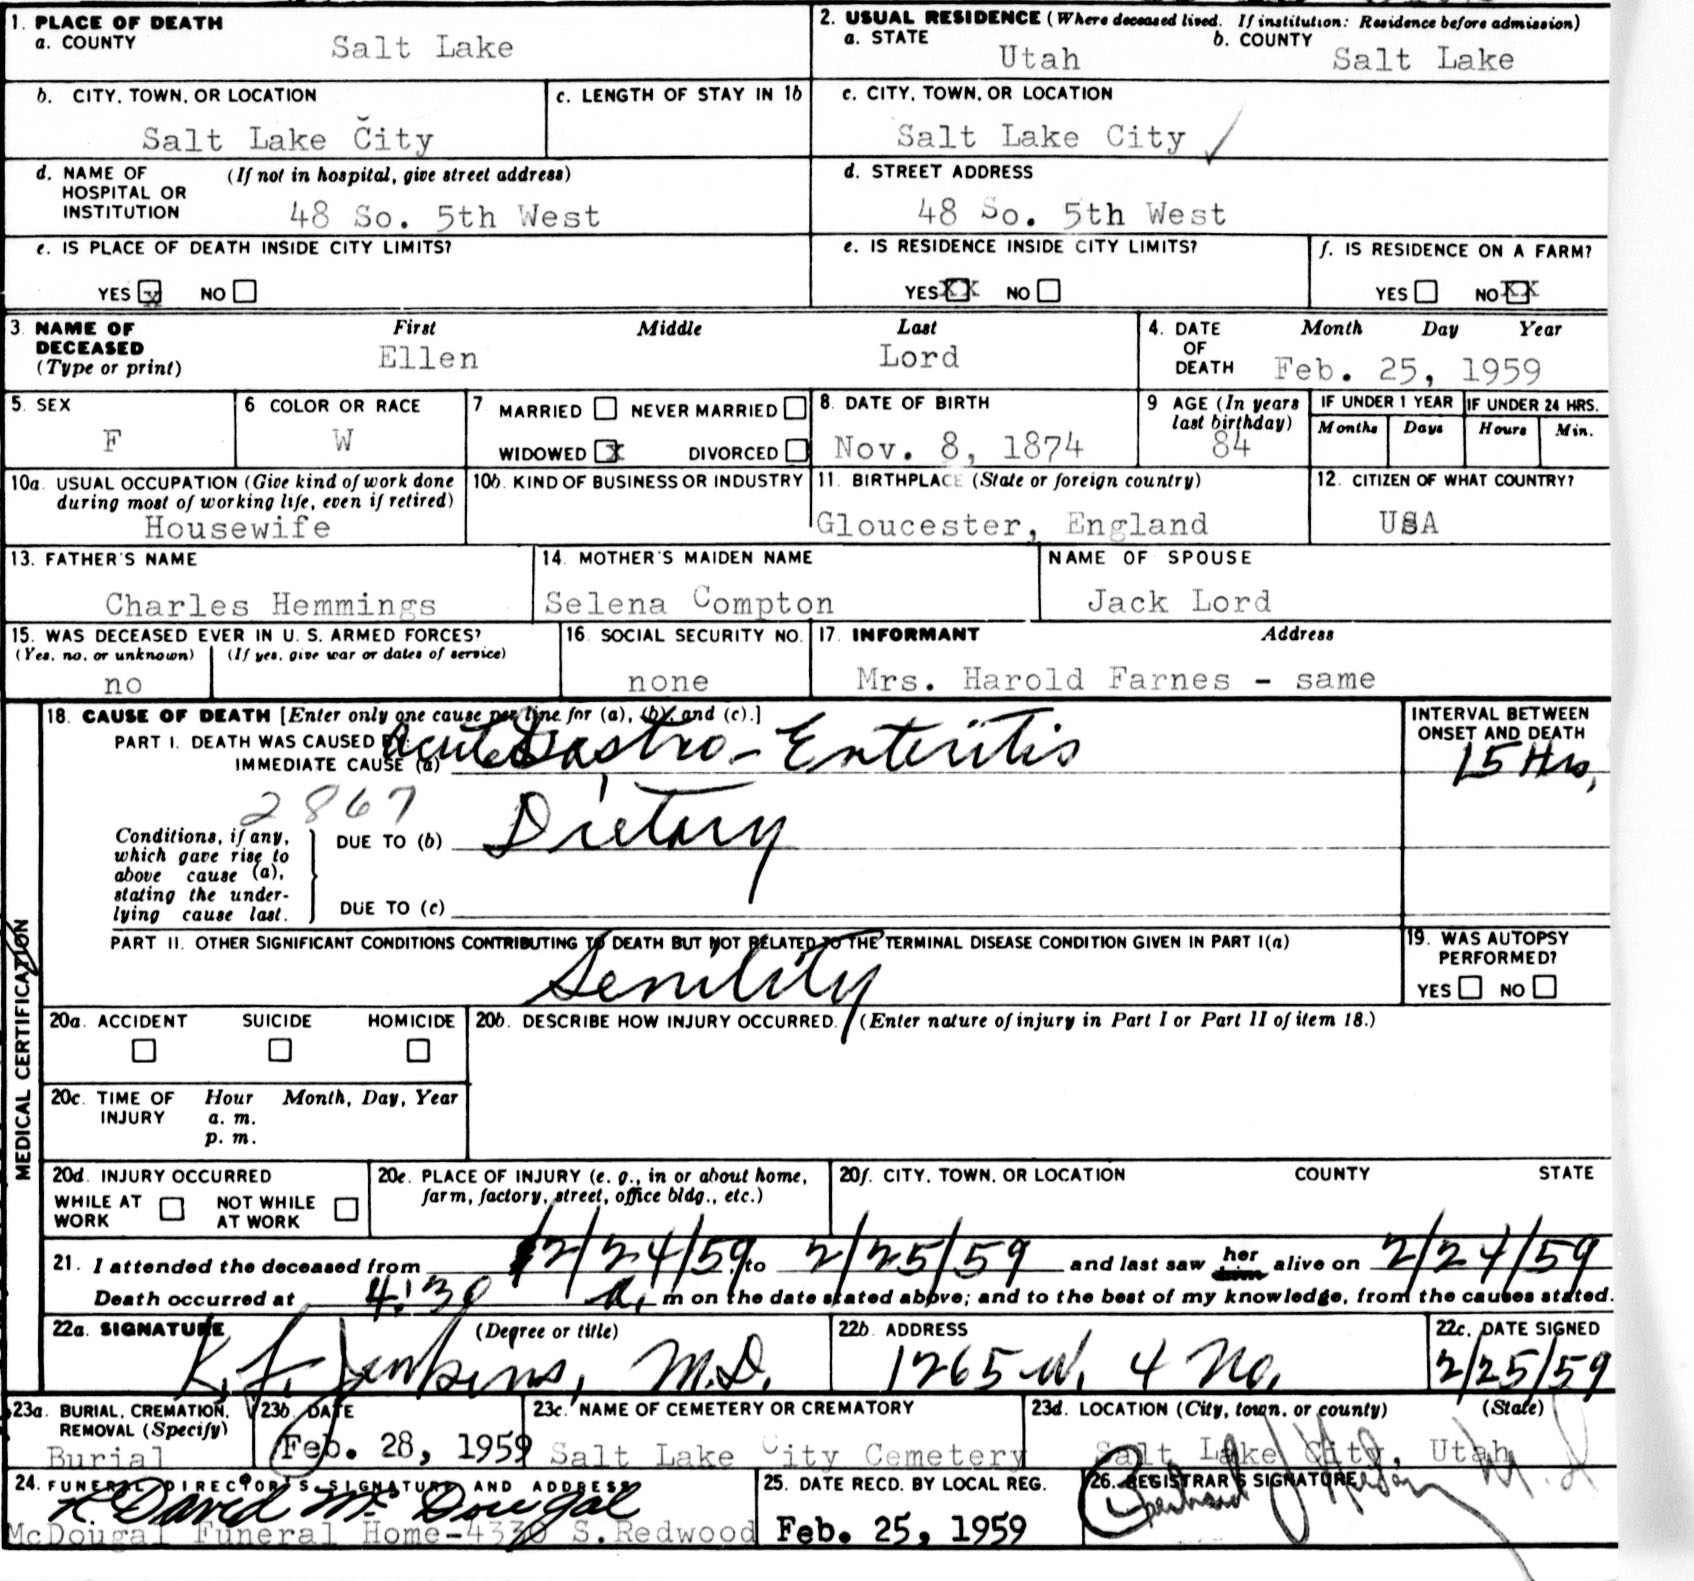 1. PLACE OF DEATH
a. COUNTY
Salt Lake
2. USUAL RESIDENCE (Where deceased lived. If institution: Residence before admission)
a. STATE
Utah
b. COUNTY
Salt Lake
b. CITY, TOWN, OR LOCATION
Salt Lake City
c. LENGTH OF STAY IN 1b
c. CITY, TOWN, OR LOCATION
Salt Lake City
d. NAME OF HOSPITAL OR INSTITUTION
(If not in hospital, give street address)
48 So. 5th West
d. STREET ADDRESS
48 So. 5th West
e. IS PLACE OF DEATH INSIDE CITY LIMITS?
YES x NO
e. IS RESIDENCE INSIDE CITY LIMITS?
YES XX NO
f. IS RESIDENCE ON A FARM?
YES NO XX
3. NAME OF DECEASED
(Type or print)
First Middle Last
Ellen Lord
4. DATE OF DEATH
Month Day Year
Feb. 25, 1959
5. SEX
F
6 COLOR OR RACE
W
7 MARRIED NEVER MARRIED
WIDOWED x DIVORCED
8. DATE OF BIRTH
Nov. 8, 1874
9 AGE (In years last birthday)
84
IF UNDER 1 YEAR
Months Days
IF UNDER 24 HRS.
Hours Min.
10a. USUAL OCCUPATION (Give kind of work done during most of working life, even if retired)
Housewife
10b. KIND OF BUSINESS OR INDUSTRY
11. BIRTHPLACE (State or foreign country)
Gloucester, England
12. CITIZEN OF WHAT COUNTRY?
USA
13. FATHER'S NAME
Charles Hemmings
14. MOTHER'S MAIDEN NAME
Selena Compton
NAME OF SPOUSE
Jack Lord
15. WAS DECEASED EVER IN U. S. ARMED FORCES?
(Yes, no, or unknown) (If yes, give war or dates of service)
no
16. SOCIAL SECURITY NO.
none
17. INFORMANT Address
Mrs. Harold Farnes - same
MEDICAL CERTIFICATION
18. CAUSE OF DEATH [Enter only one cause per line for (a), (b), and (c).]
PART I. DEATH WAS CAUSED BY:
IMMEDIATE CAUSE (a) Acute Gastro-Enteritis
INTERVAL BETWEEN ONSET AND DEATH
15 Hrs,
2867
Conditions, if any, which gave rise to above cause (a), stating the underlying cause last.
DUE TO (b) Dietary
DUE TO (c)
PART II. OTHER SIGNIFICANT CONDITIONS CONTRIBUTING TO DEATH BUT NOT RELATED TO THE TERMINAL DISEASE CONDITION GIVEN IN PART I(a)
Senility
19. WAS AUTOPSY PERFORMED?
YES NO
20a. ACCIDENT SUICIDE HOMICIDE
20b. DESCRIBE HOW INJURY OCCURRED. (Enter nature of injury in Part I or Part II of item 18.)
20c. TIME OF INJURY
Hour Month, Day, Year
a. m.
p. m.
20d. INJURY OCCURRED
WHILE AT WORK NOT WHILE AT WORK
20e. PLACE OF INJURY (e. g., in or about home, farm, factory, street, office bldg., etc.)
20f. CITY, TOWN, OR LOCATION COUNTY STATE
21. I attended the deceased from 2/24/59 to 2/25/59 and last saw her alive on 2/24/59
Death occurred at 4:30 a. m on the date stated above; and to the best of my knowledge, from the causes stated.
22a. SIGNATURE (Degree or title)
K. L. Jenkins, M.D.
22b. ADDRESS
1265 W. 4 No.
22c. DATE SIGNED
2/25/59
23a. BURIAL, CREMATION, REMOVAL (Specify)
Burial
23b. DATE
Feb. 28, 1959
23c. NAME OF CEMETERY OR CREMATORY
Salt Lake City Cemetery
23d. LOCATION (City, town, or county) (State)
Salt Lake City, Utah
24. FUNERAL DIRECTOR'S SIGNATURE AND ADDRESS
R David McDougal
McDougal Funeral Home-4330 S.Redwood
25. DATE RECD. BY LOCAL REG.
Feb. 25, 1959
26. REGISTRAR'S SIGNATURE
M.D